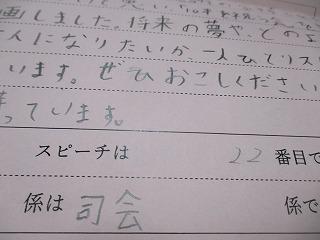 画しました。将来の夢や、どのよ
人になりたいか、一人ひとりス
います。ぜひおこしください
っています。
スピーチは 22 番目で
係は 司会 係で